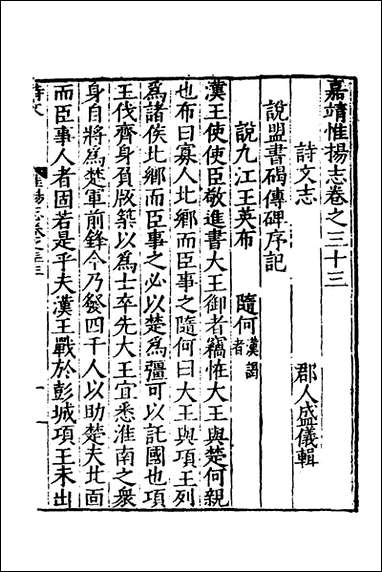 嘉靖惟揚志卷之三十三
詩文志　郡人盛儀輯
說盟書碣傳碑序記
說九江王英布　隨何漢謁者
漢王使使臣敬進書大王御者竊恠大王與楚何親
也布曰寡人北鄉而臣事之隨何曰大王與項王列
為諸侯北鄉而臣事之必以楚為彊可以託國也項
王伐齊身負版築以為士卒先大王宜悉淮南之衆
身自將為楚軍前鋒今乃發四千人以助楚夫北面
而臣事人者固若是乎夫漢王戰於彭城項王未出